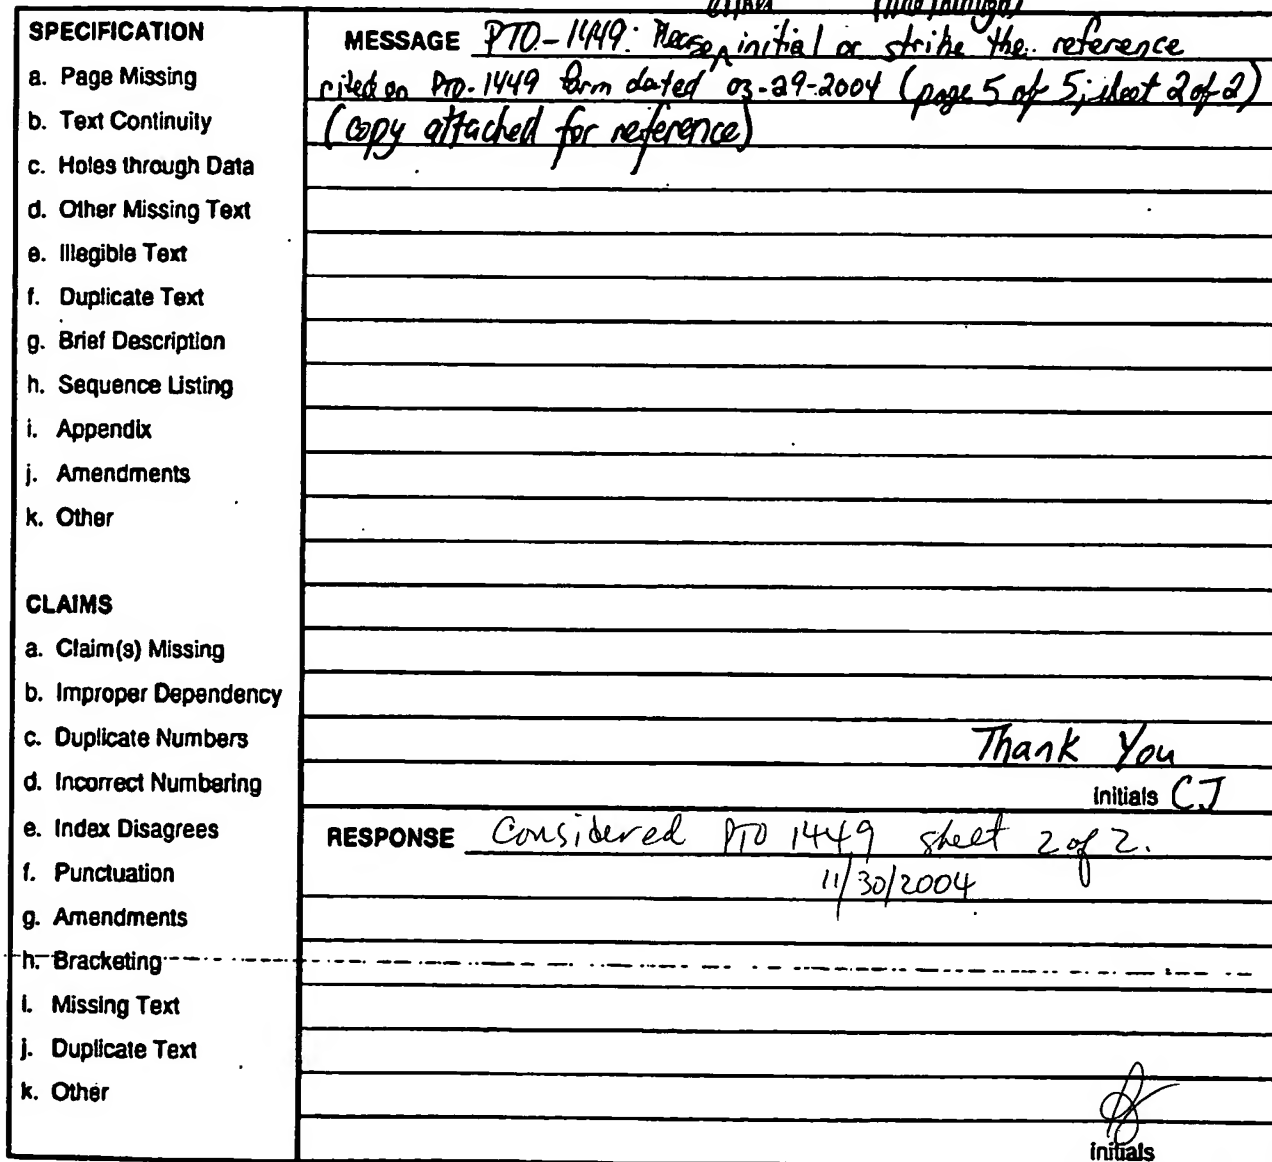 SPECIFICATION
a. Page Missing
b. Text Continuity
c. Holes through Data
d. Other Missing Text
e. Illegible Text
f. Duplicate Text
g. Brief Description
h. Sequence Listing
i. Appendix
j. Amendments
k. Other
CLAIMS
a. Claim(s) Missing
b. Improper Dependency
c. Duplicate Numbers
d. Incorrect Numbering
e. Index Disagrees
f. Punctuation
g. Amendments
h. Bracketing
i. Missing Text
j. Duplicate Text
k. Other
MESSAGE PTO-1449: Please initial or strike the reference
cited on PTO-1449 form dated 03-29-2004 (page 5 of 5; sheet 2 of 2)
(copy attached for reference)
Thank You
initials CJ
RESPONSE Considered PTO 1449 sheet 2 of 2.
11/30/2004
initials